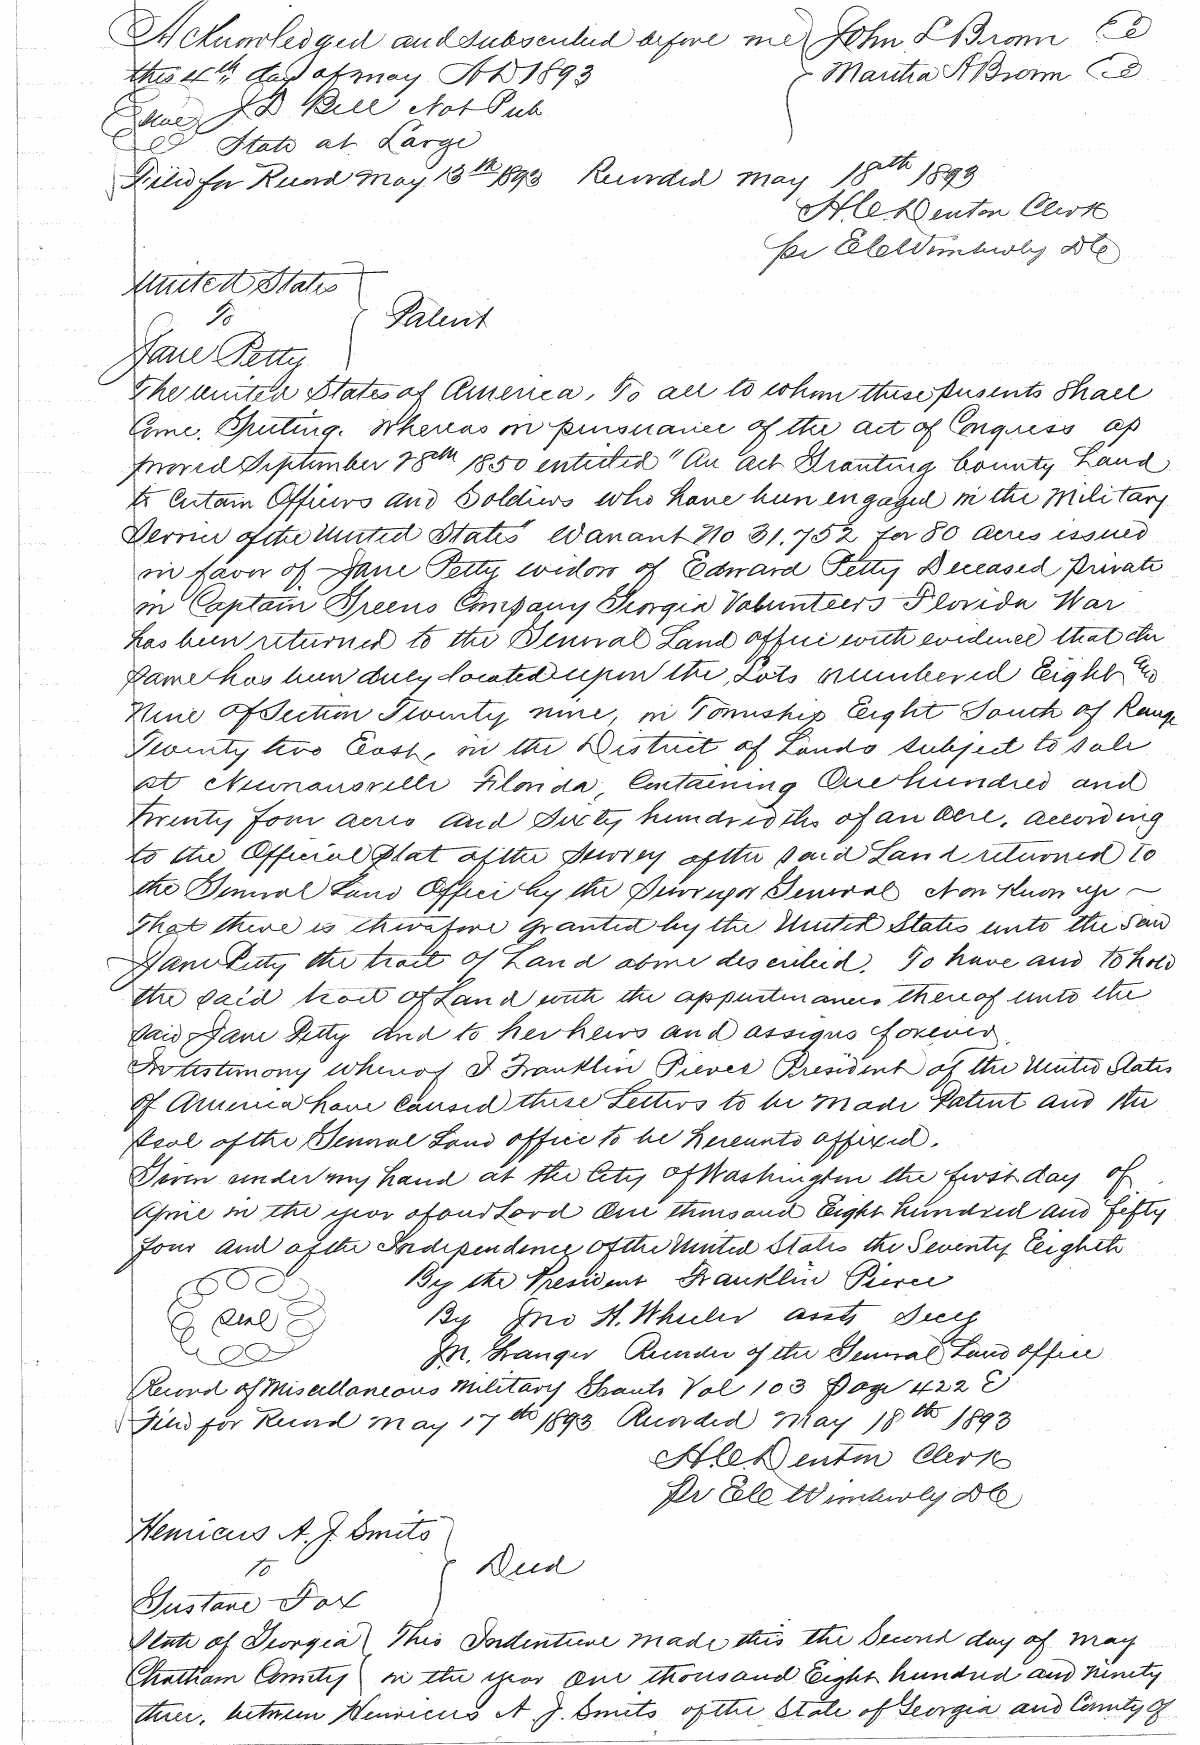 Acknowledged and subscribed before me John L Brown
this 4th day of May AD 1893 Martha A Brown
J D Bell Not Pub
State at Large
Filed for Record May 13th 1893 Recorded May 18th 1893
H.C. Denton Clerk
per E C Wimberly DC
United States
To
Patent
Jane Petty
The united States of America, To all to whom these presents shall
Come, Greeting. Whereas in pursuance of the act of Congress ap
proved September 28th 1850 entitled "An act Granting bounty Land
to Certain Officers and Soldiers who have been engaged in the Military
Service of the United States" Warrant No 31.752 for 80 acres issued
in favor of Jane Petty widow of Edward Petty Deceased private
in Captain Greens Company Georgia Volunteers Florida War
has been returned to the General Land office with evidence that the
same has been duly located upon the Lots numbered Eight and
Nine of Section Twenty nine, in Township Eight South of Range
Twenty two East, in the District of Lands subject to sale
at Newnansville Florida, Containing One hundred and
twenty four acres and Sixty hundredths of an acre, according
to the Official plat of the Survey of the said Land returned to
the General Land Office by the Surveyor General Now Know ye –
That there is therefore granted by the United States unto the said
Jane Petty the tract of Land above described. To have and to hold
the said tract of Land with the appurtenances thereof unto the
said Jane Petty and to her heirs and assigns forever
In testimony whereof I Franklin Pierce President of the United States
of America have Caused these Letters to be made Patent and the
seal of the General Land office to be hereunto affixed.
Given under my hand at the City of Washington the first day of
April in the year of our Lord One thousand Eight hundred and fifty
four and of the Independence of the United States the Seventy Eighth
By the President Franklin Pierce
Seal By Jno H. Wheeler asst Secy
M. Granger Recorder of the General Land office
Record of Miscellaneous Military Grants Vol 103 Page 422 E
Filed for Record May 17th 1893 Recorded May 18th 1893
H.C. Denton Clerk
Per E C Wimberly DC
Henricus A. J. Smits
to
Deed
Gustave Fox
State of Georgia This Indenture made this the Second day of May
Chatham County in the year one thousand Eight hundred and ninety
three, between Henricus A. J. Smits of the State of Georgia and County of